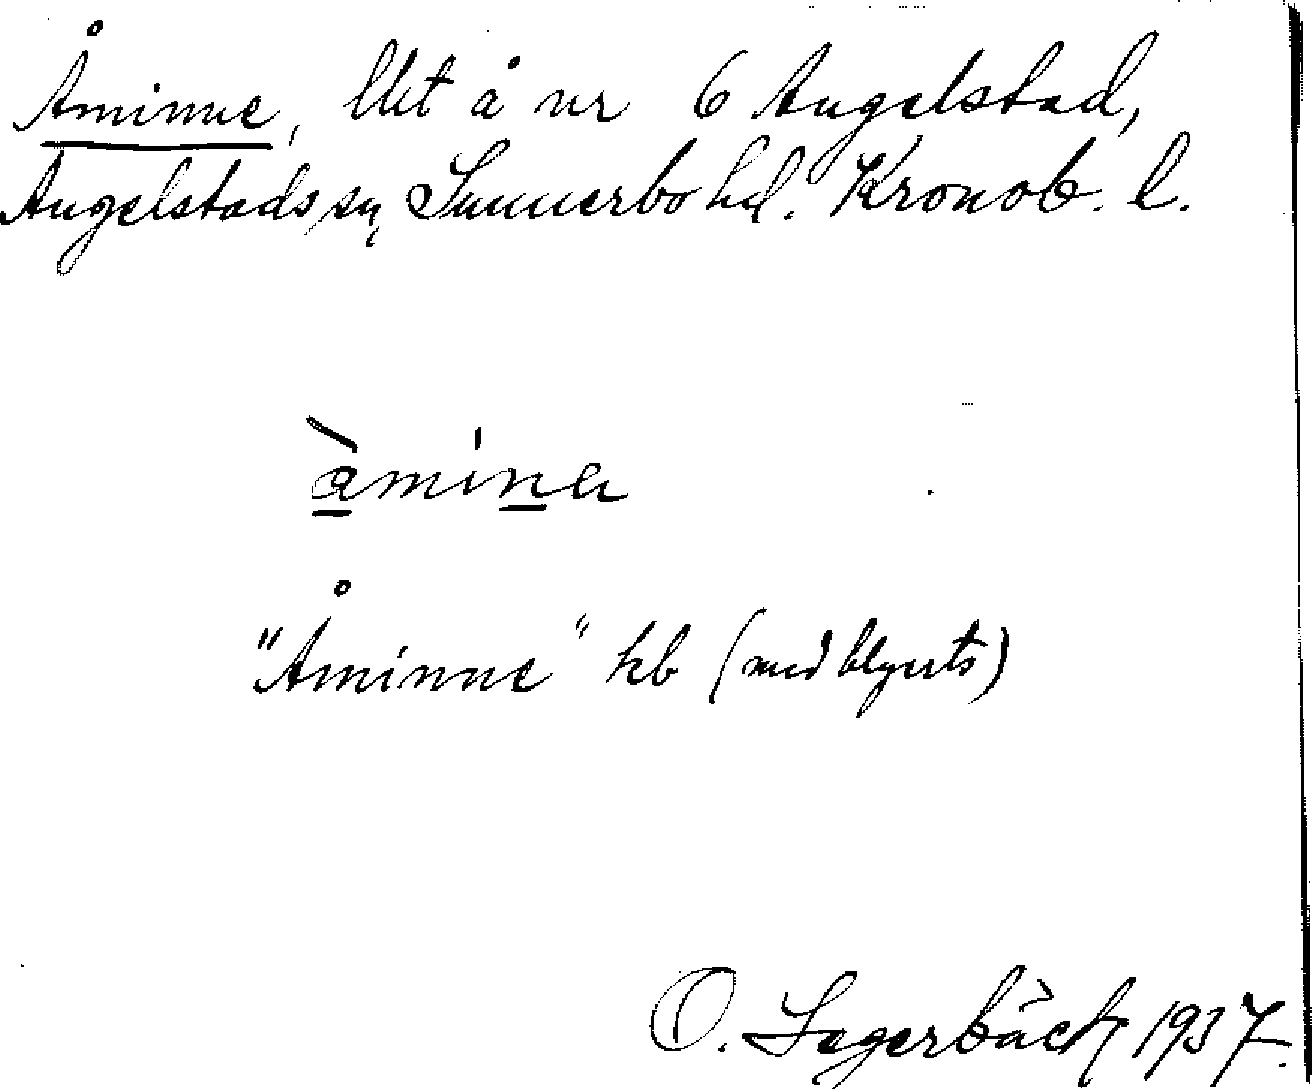 Åminne, lht å nr 6 Angelstad,
Angelstads sn, Sunnerbo hd. Kronob. l.
åmina
"Åminne" kb (med blyerts)
O. Lagerbäck 1937.